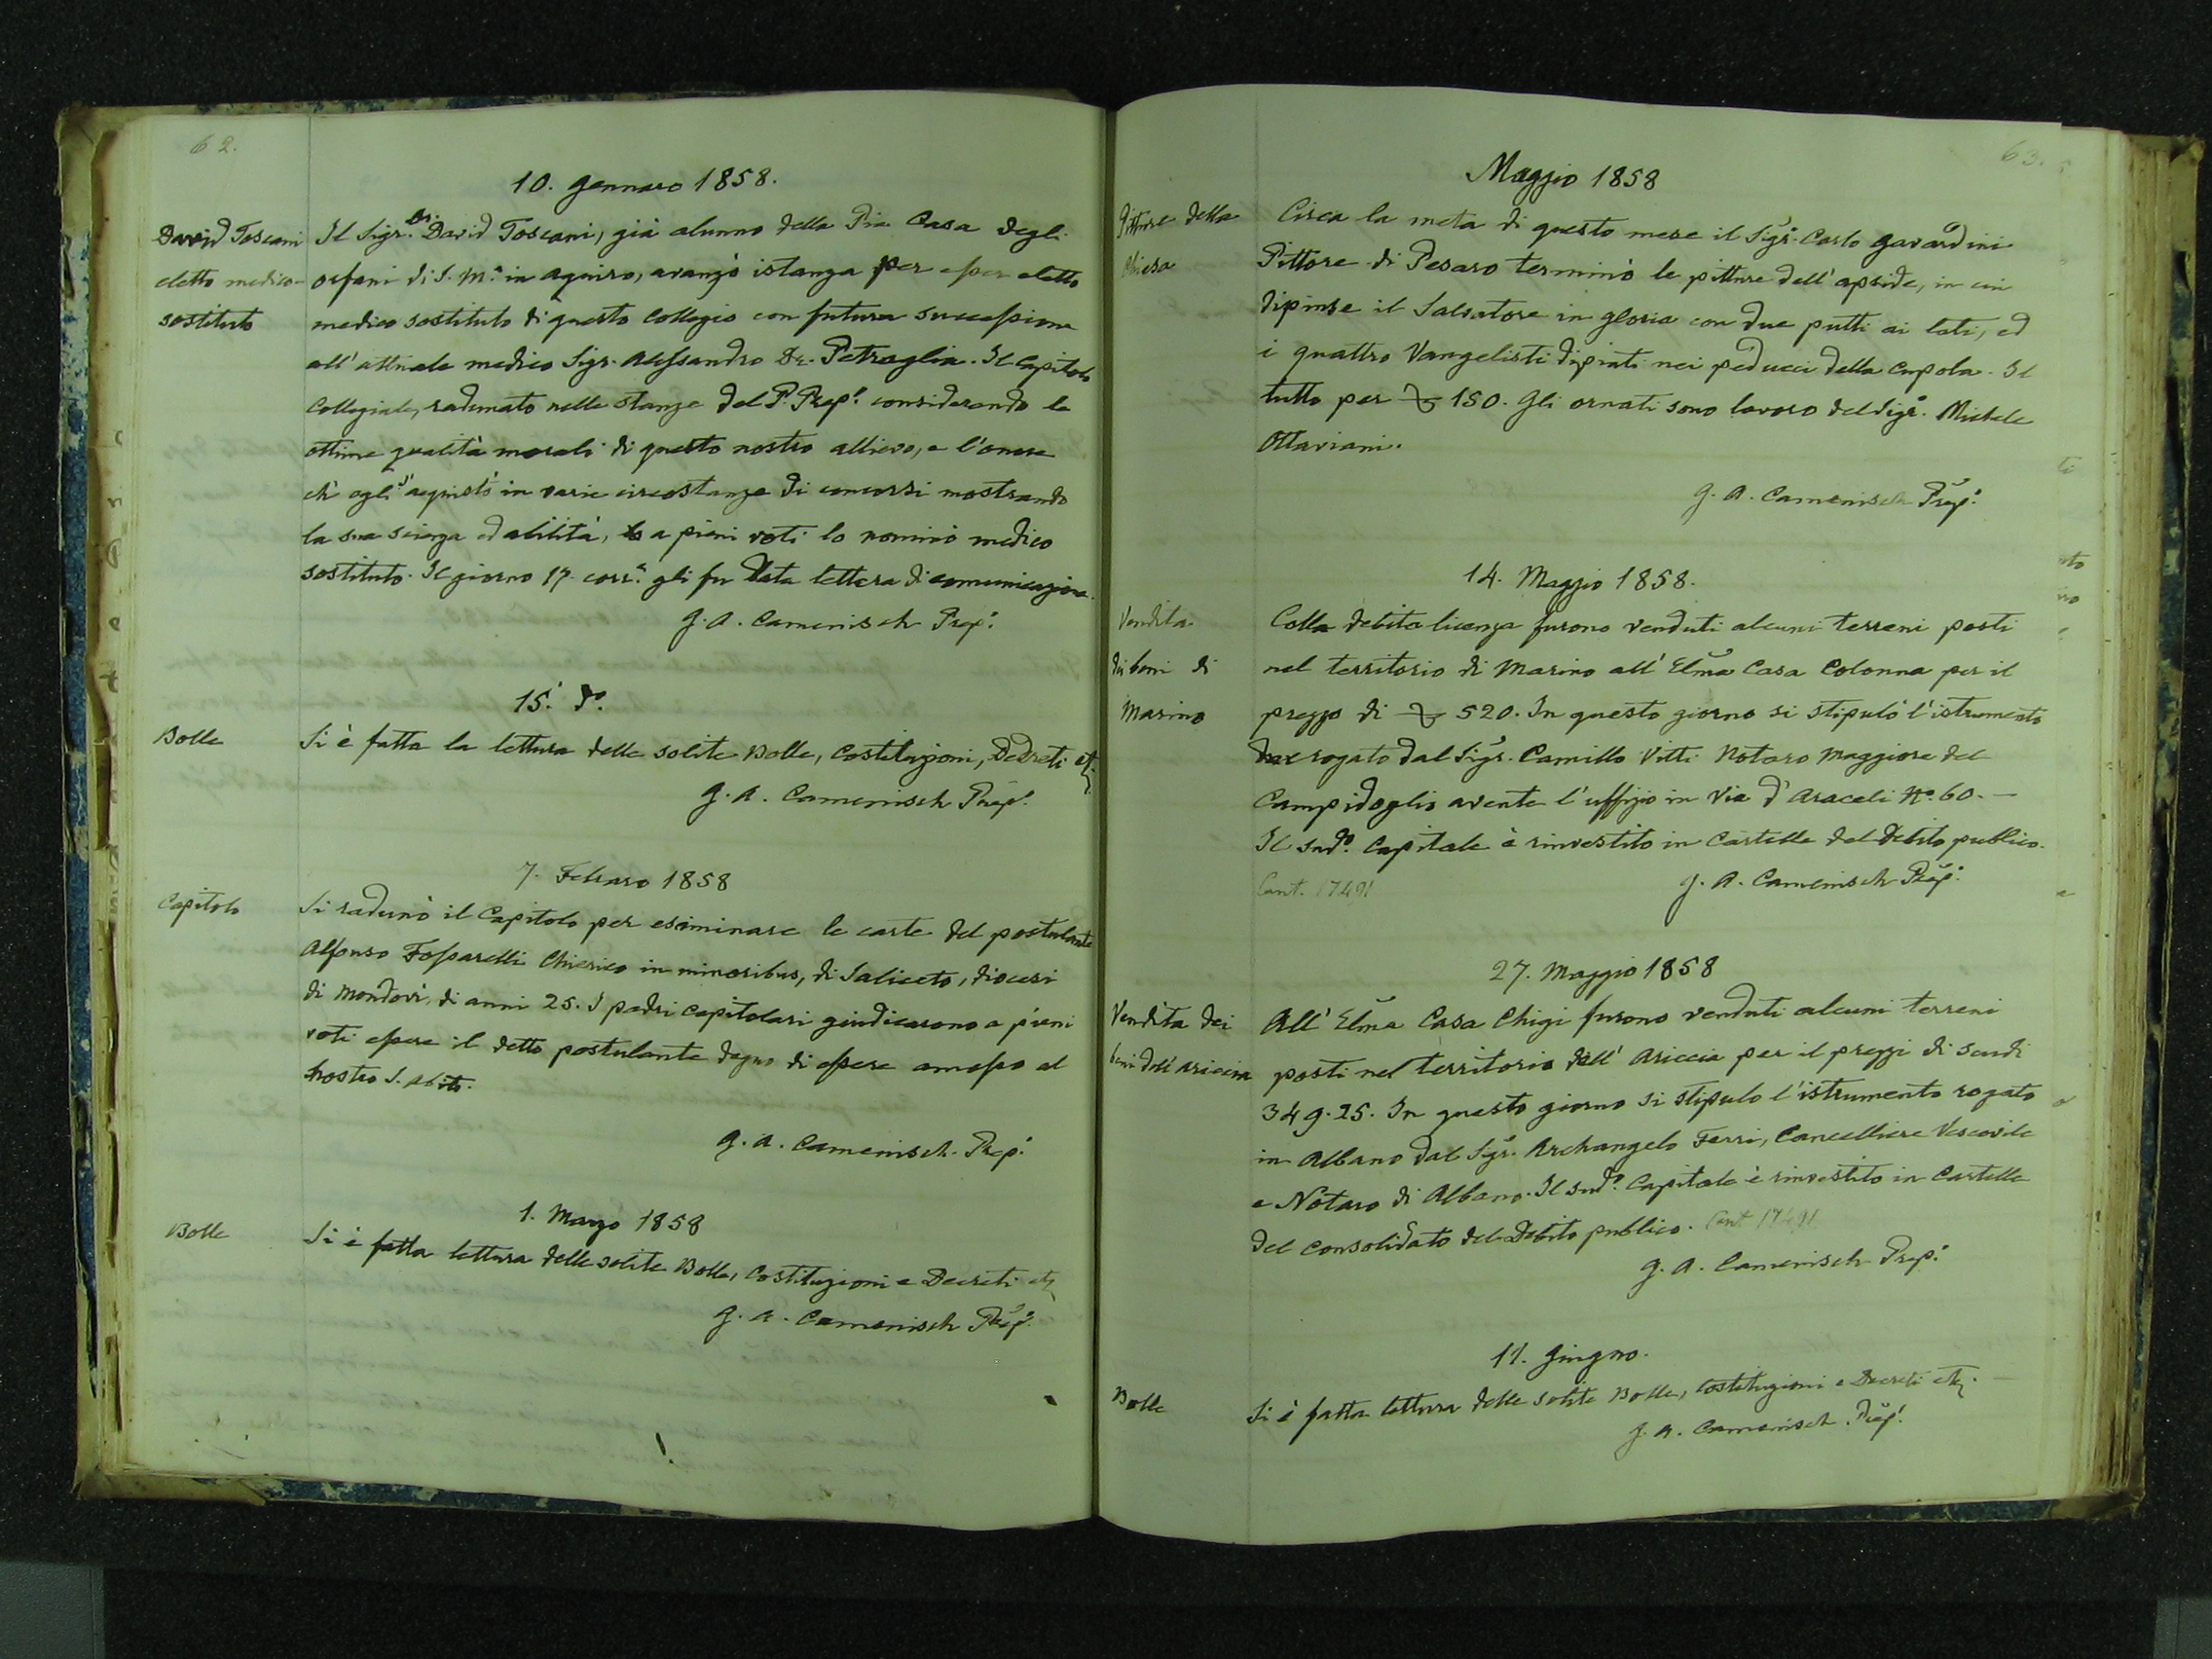 62.
10. Gennaro 1858.
David Toscani
eletto medico
sostituto
Il Sigr. Dr. David Toscani, già alunno della Pia Casa degli
orfani di S. M.a in Aquiro, avanzò istanza per esser eletto
medico sostituto di questo Collegio con futura successione
all'attuale medico Sigr. Alessandro Dr. Petraglia. Il Capitolo
Collegiale, radunato nelle stanze del P. Prep.o considerando le
ottime qualità morali di questo nostro allievo, e l'onore
ch'egli s'acquistò in varie circostanze di concorsi mostrando
la sua scienza ed abilità, a pieni voti lo nominò medico
sostituto. Il giorno 17. corr.e gli fu data lettera di comunicazione.
G. A. Camenisch Prep.o
15. do.
Bolle
Si è fatta la lettura delle solite Bolle, Costituzioni, Decreti etc.
G. A. Camenisch Prep.o
7. Febraro 1858
Capitolo
Si radunò il Capitolo per esiminare le carte del postulante
Alfonso Fossarelli Chierico in minoribus, di Saliceto, diocesi
di Mondovì, di anni 25. I padri capitolari giudicarono a pieni
voti essere il detto postulante degno di essere amesso al
nostro S. abito.
G. A. Camenisch Prep.o
1. Marzo 1858
Bolle
Si è fatta lettura delle solite Bolle, Costituzioni e Decreti etc
G. A. Camenisch Prep.o
63.
Maggio 1858
Pitture della
Chiesa
Circa la meta di questo mese il Sigr. Carlo Gavardini
Pittore di Pesaro terminò le pitture dell'apside, in cui
dipinse il Salvatore in gloria con due putti ai lati, ed
i quattro Vangelisti dipinti nei peducci della cupola. Il
tutto per 150. Gli ornati sono lavoro del Sigr. Michele
Ottaviani.
G. A. Camenisch Prep.o
14. Maggio 1858.
Vendita
dei beni di
Marino
Colla debita licenza furono venduti alcuni terreni posti
nel territorio di Marino all'Ecc̃ma Casa Colonna per il
prezzo di 520. In questo giorno si stipulò l'istrumento
rogato dal Sigr. Camillo Vitti Notaro Maggiore del
Campidoglio avente l'uffizio in Via d'Araceli No. 60. —
Il sudo. Capitale è rinvestito in Cartelle del Debito publico.
Cont. 17491
G. A. Camenisch Prep.o
27. Maggio 1858
Vendita dei
beni dell'Ariccia
All'Ecc̃ma Casa Chigi furono venduti alcuni terreni
posti nel territorio dell'Ariccia per il prezzi di scudi
349.25. In questo giorno si stipulo l'istrumento rogato
in Albano dal Sigr. Archangelo Ferri, Cancelliere Vescovile
e Notaro di Albano. Il sudo. Capitale è rinvestito in Cartelle
del consolidato del Debito publico. Cont 17491
G. A. Camenisch Prep.o
11. Giugno.
Bolle
Si è fatta lettura delle solite Bolle, Costituzioni e Decreti etc.
G. A. Camenisch Prep.o